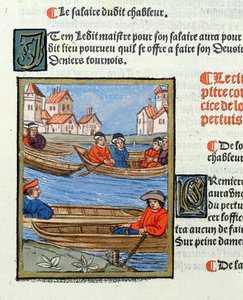 Le salaire dudit chableur.
Item Ledit maistre pour son salaire aura pour
dit lieu pourueu quil se offre a faire son Deuoir
Deniers tournois.
Lectir
pitre co
cice de lo
pertuis
De lo
chableur
Premier
aura vng
du pertu
cer loffic
tra aucun de fair
Sur peine dame
De la